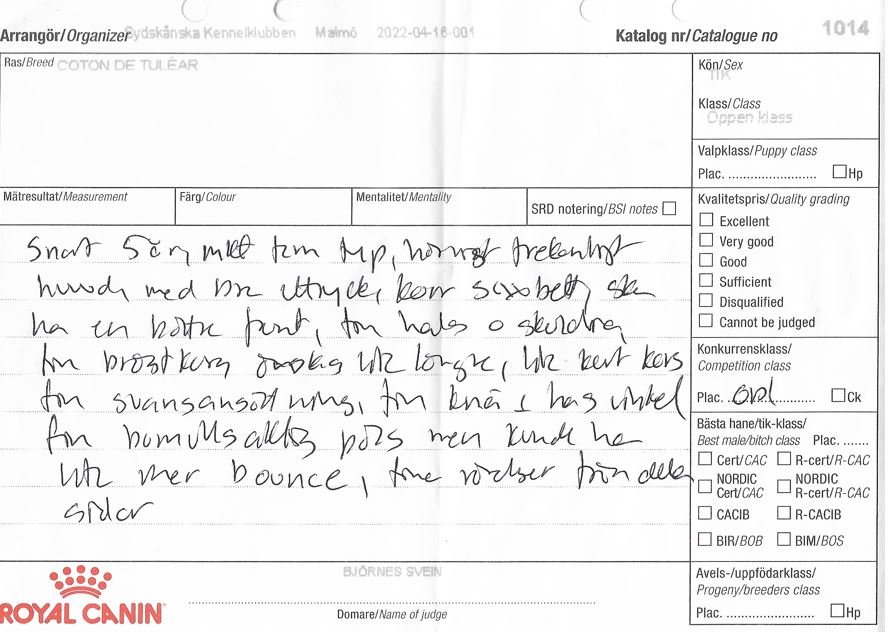 Arrangör/Organizer Sydskånska Kennelklubben Malmö 2022-04-16-001
Katalog nr/Catalogue no 1014
Ras/Breed COTON DE TULÉAR
Kön/Sex
TIK
Klass/Class
Öppen klass
Valpklass/Puppy class
Plac. ........................ Hp
Mätresultat/Measurement
Färg/Colour
Mentalitet/Mentality
SRD notering/BSI notes
Kvalitetspris/Quality grading
Excellent
Very good
Good
Sufficient
Disqualified
Cannot be judged
Snart 5 år, mkt fem typ,
huvud, med bra uttryck, korr saxbett, ska
ha en bättre front, fin hals o skuldra,
fin bröstkorg lite längre, lite kort kors
fin svansansättning, fin knä o has vinkel
fin bomullsaktig päls men kunde ha
lite mer bounce, fina rörelser från
sidor
Konkurrensklass/
Competition class
Plac. ............ Ck
Bästa hane/tik-klass/
Best male/bitch class Plac. .......
Cert/CAC R-cert/R-CAC
NORDIC Cert/CAC NORDIC R-cert/R-CAC
CACIB R-CACIB
BIR/BOB BIM/BOS
Avels-/uppfödarklass/
Progeny/breeders class
Plac. ........................ Hp
BJÖRNES SVEIN
Domare/Name of judge
ROYAL CANIN